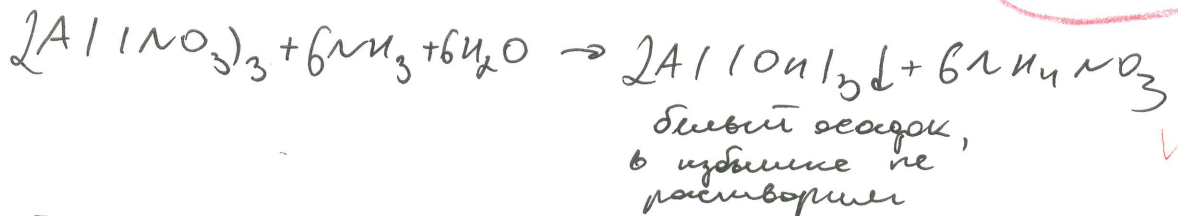 2Al(NO₃)₃ + 6NH₃ + 6H₂O → 2Al(OH)₃↓ + 6NH₄NO₃
белый осадок,
в избытке не
растворим